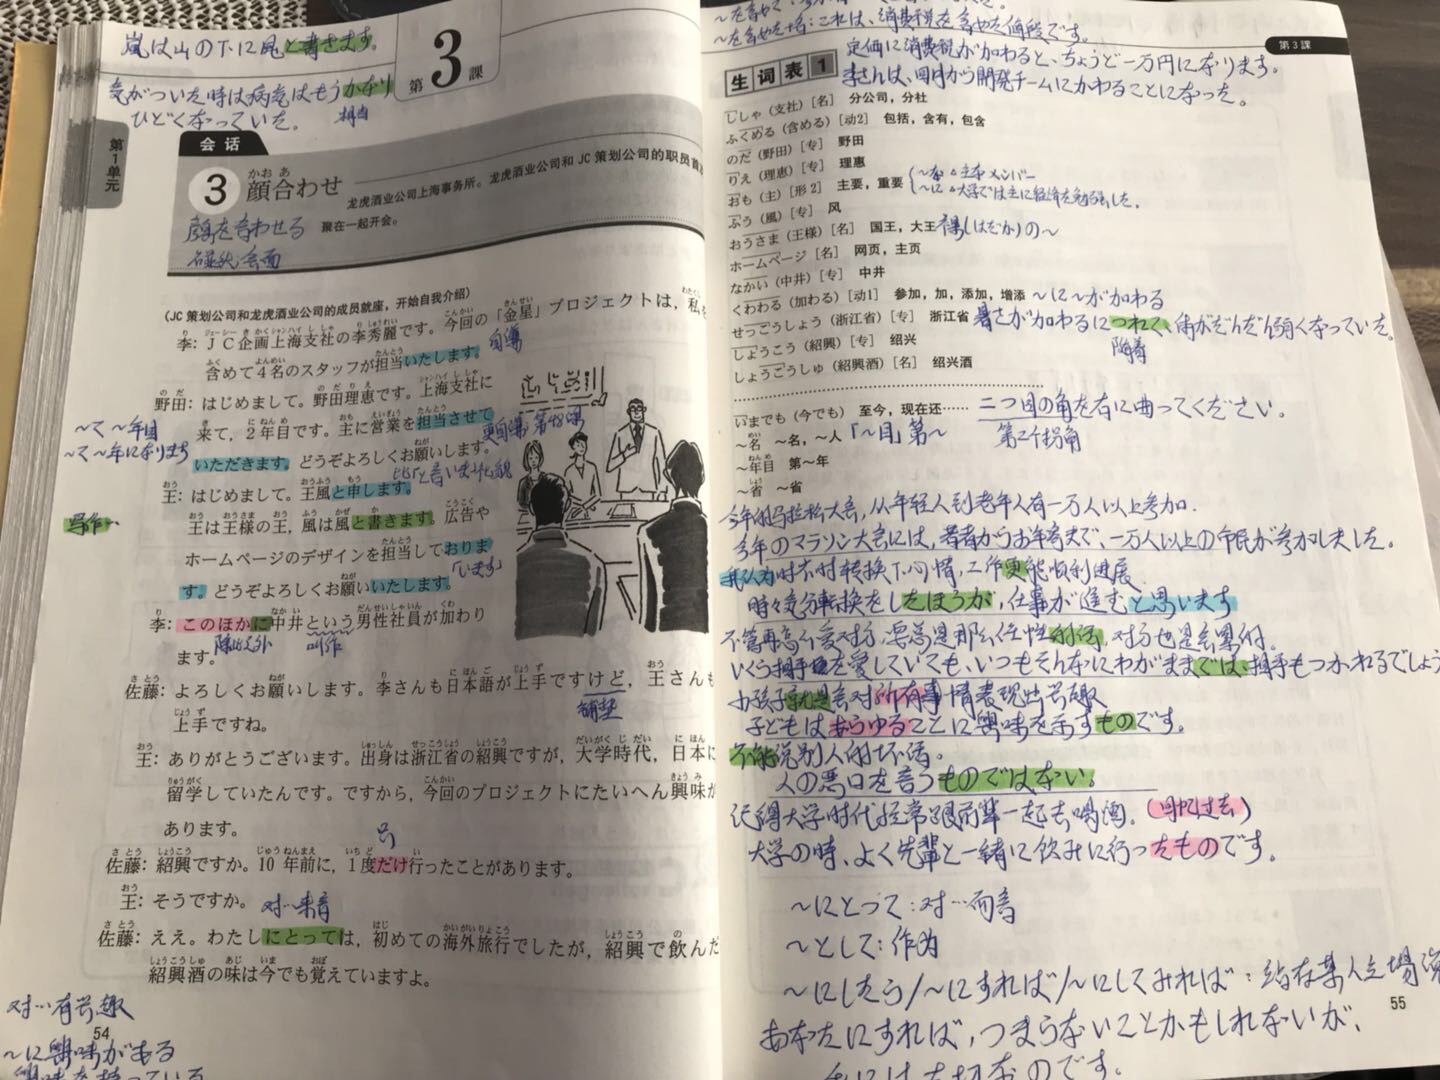 嵐は山の下に風と書きます。
気がついた時は病気はもうかなり
相当
ひどくなっていた。
第3課
第1単元
会话
3 顔合わせ
かおあ
龙虎酒业公司上海事务所。龙虎酒业公司和JC策划公司的职员首
聚在一起开会。
顔を合わせる
碰头会面
(JC策划公司和龙虎酒业公司的成员就座，开始自我介绍)
李：JC企画上海支社の李秀麗です。今回の「金星」プロジェクトは，私を
含めて4名のスタッフが担当いたします。
自谦
野田：はじめまして。野田理恵です。上海支社に
来て，2年目です。主に営業を担当させて
更自谦 第48课
～て～年目
～て～年になります
いただきます。どうぞよろしくお願いします。
比「と言います」礼貌
王：はじめまして。王風と申します。
王は王様の王，風は風と書きます。広告や
写作…
ホームページのデザインを担当しておりま
「います」
す。どうぞよろしくお願いいたします。
李：このほかに中井という男性社員が加わり
除此之外 叫作
ます。
佐藤：よろしくお願いします。李さんも日本語が上手ですけど，王さんも
铺垫
上手ですね。
王：ありがとうございます。出身は浙江省の紹興ですが，大学時代，日本に
留学していたんです。ですから，今回のプロジェクトにたいへん興味が
あります。
只
佐藤：紹興ですか。10年前に，1度だけ行ったことがあります。
王：そうですか。
对…来言
佐藤：ええ。わたしにとっては，初めての海外旅行でしたが，紹興で飲んだ
紹興酒の味は今でも覚えていますよ。
对…有兴趣
54
～に興味がある
興味を持っている
～を含めた：これは、消費税を含めた値段です。
定価に消費税が加わると、ちょうど一万円になります。
李さんは、四月から開発チームにかわることになった。
第3課
生词表1
ししゃ（支社）[名] 分公司，分社
ふくめる（含める）[动2] 包括，含有，包含
のだ（野田）[专] 野田
りえ（理恵）[专] 理惠
おも（主）[形2] 主要，重要
～な：主なメンバー
～に：大学では主に経済を勉強した。
ふう（風）[专] 风
おうさま（王様）[名] 国王，大王
裸(はだか)の～
ホームページ [名] 网页，主页
なかい（中井）[专] 中井
くわわる（加わる）[动1] 参加，加，添加，增添
～に～が加わる
せっこうしょう（浙江省）[专] 浙江省
暑さが加わるにつれて、体がだんだん弱くなっていた。
随着
しょうこう（紹興）[专] 绍兴
しょうこうしゅ（紹興酒）[名] 绍兴酒
いまでも（今でも） 至今，现在还……
二つ目の角を右に曲ってください。
～名 ～名，～人
「～目」第～
第二个拐角
～年目 第～年
～省 ～省
今年的马拉松大会，从年轻人到老年人有一万人以上参加．
今年のマラソン大会には，若者からお年寄まで、一万人以上の市民が参加しました。
我认为时不时转换下心情，工作更能顺利进展．
時々気分転換をしたほうが，仕事が進むと思います
不管再怎么爱对方，要总是那么任性的话，对方也是会累的．
いくら相手を愛していても，いつもそんなにわがままでは、相手もつかれるでしょう
小孩子就是会对所有事情表现出兴趣
子どもはあらゆることに興味を示すものです。
不能说别人的坏话。
人の悪口を言うものではない。
记得大学时代经常跟前辈一起去喝酒．（回忆过去）
大学の時、よく先輩と一緒に飲みに行ったものです。
～にとって：对…而言
～として：作为
～にしたら/～にすれば/～にしてみれば：站在某人立場
55
あなたにすれば，つまらないことかもしれないが、
私には大切なのです。